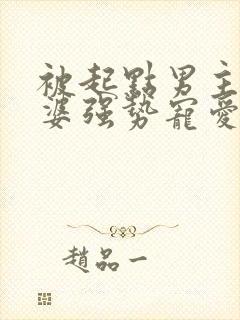 被起點男主
婆强勢寵愛
趙品一